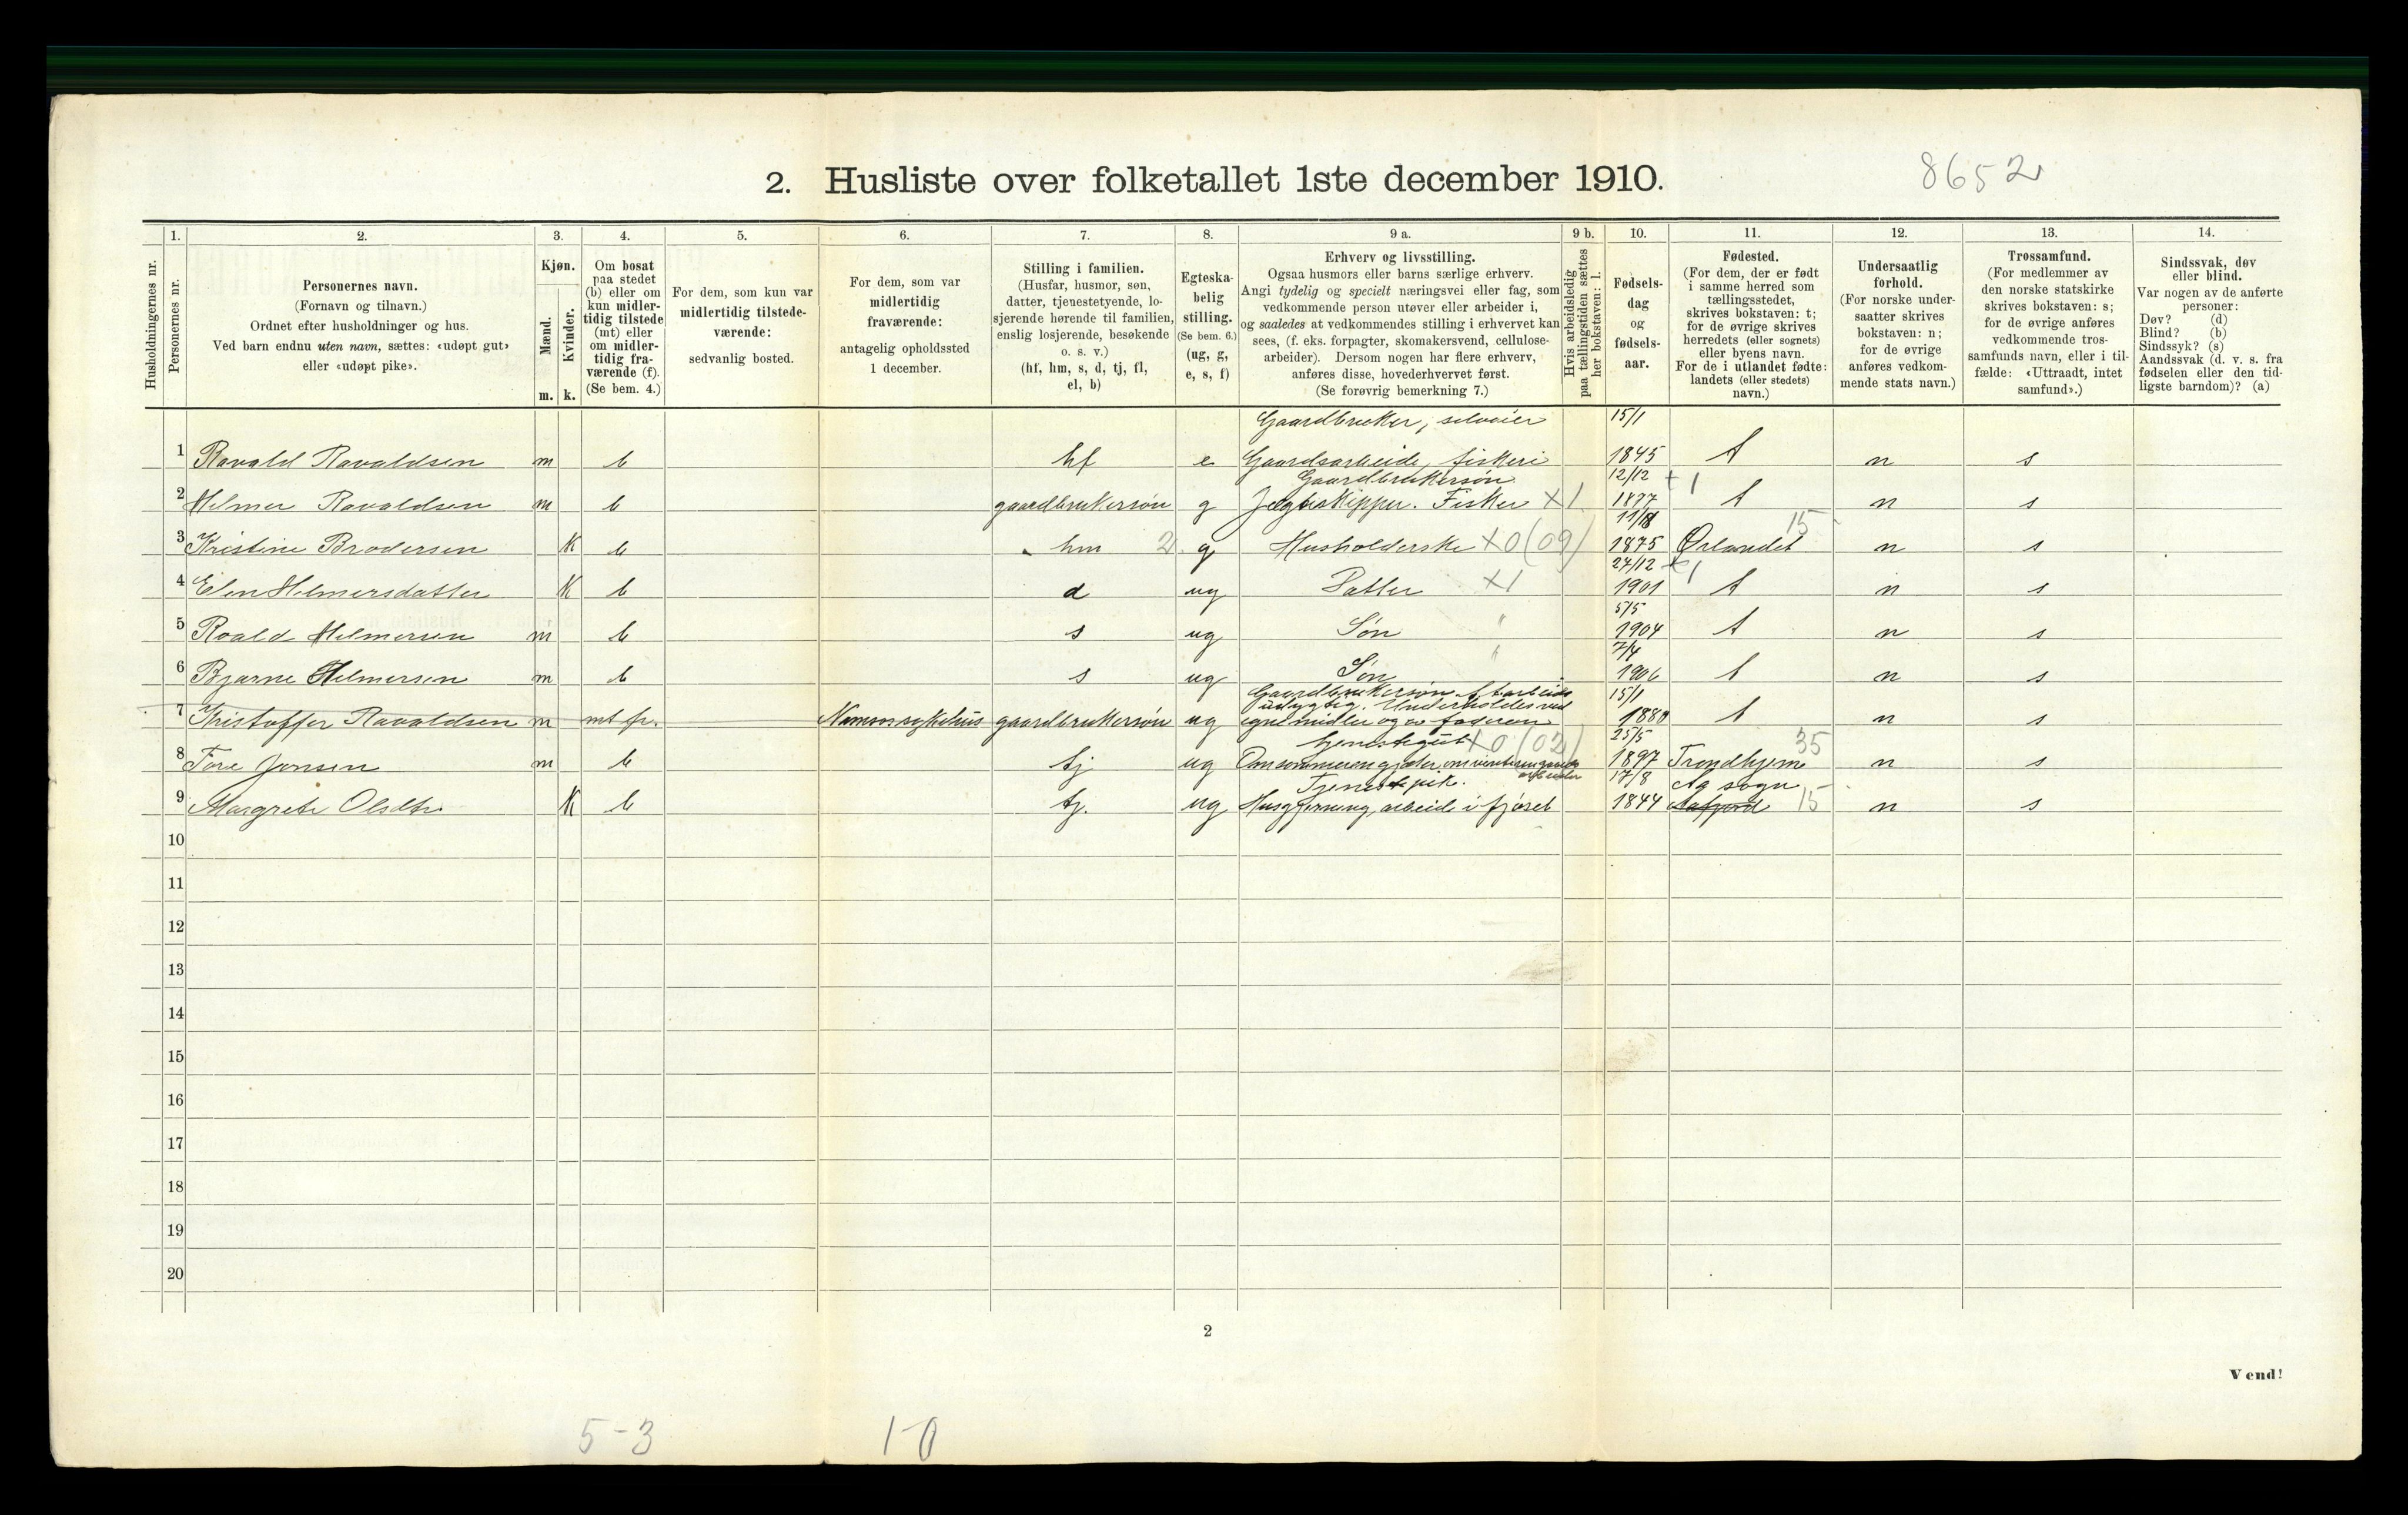 2. Husliste over folketallet 1ste december 1910.
8652
1. 2. 3. 4. 5. 6. 7. 8. 9 a. 9 b. 10. 11. 12. 13. 14.
Husholdningernes nr.
Personernes nr.
Personernes navn.
(Fornavn og tilnavn.)
Ordnet efter husholdninger og hus.
Ved barn endnu uten navn, sættes: «udøpt gut»
eller «udøpt pike».
Kjøn.
Mænd.
Kvinder.
m. k.
Om bosat
paa stedet
(b) eller om
kun midler-
tidig tilstede
(mt) eller
om midler-
tidig fra-
værende (f).
(Se bem. 4.)
For dem, som kun var
midlertidig tilstede-
værende:
sedvanlig bosted.
For dem, som var
midlertidig
fraværende:
antagelig opholdssted
1 december.
Stilling i familien.
(Husfar, husmor, søn,
datter, tjenestetyende, lo-
sjerende hørende til familien,
enslig losjerende, besøkende
o. s. v.)
(hf, hm, s, d, tj, fl,
el, b)
Egteska-
belig
stilling.
(Se bem. 6.)
(ug, g,
e, s, f)
Erhverv og livsstilling.
Ogsaa husmors eller barns særlige erhverv.
Angi tydelig og specielt næringsvei eller fag, som
vedkommende person utøver eller arbeider i,
og saaledes at vedkommendes stilling i erhvervet kan
sees, (f. eks. forpagter, skomakersvend, cellulose-
arbeider). Dersom nogen har flere erhverv,
anføres disse, hovederhvervet først.
(Se forøvrig bemerkning 7.)
Hvis arbeidsledig
paa tællingstiden sættes
her bokstaven: l.
Fødsels-
dag
og
fødsels-
aar.
Fødested.
(For dem, der er født
i samme herred som
tællingsstedet,
skrives bokstaven: t;
for de øvrige skrives
herredets (eller sognets)
eller byens navn.
For de i utlandet fødte:
landets (eller stedets)
navn.)
Undersaatlig
forhold.
(For norske under-
saatter skrives
bokstaven: n;
for de øvrige
anføres vedkom-
mende stats navn.)
Trossamfund.
(For medlemmer av
den norske statskirke
skrives bokstaven: s;
for de øvrige anføres
vedkommende tros-
samfunds navn, eller i til-
fælde: «Uttraadt, intet
samfund».)
Sindssvak, døv
eller blind.
Var nogen av de anførte
personer:
Døv? (d)
Blind? (b)
Sindssyk? (s)
Aandssvak (d. v. s. fra
fødselen eller den tid-
ligste barndom)? (a)
Gaardbruker, selveier 15/1
1 Ravald Ravaldsen m b hf e Gaardsarbeide, fiskeri 1845 t n s
Gaardbrukersøn 12/12 +1
2 Helmer Ravaldsen m b gaardbrukersøn g Jægteskipper. Fisker X1 1877 t n s
11/18 15
3 Kristine Brodersen K b hm 2 g Husholderske X0(09) 1875 Ørlandet n s
24/12 +1
4 Elen Helmersdatter K b d ug Datter X1 1901 t n s
5/5
5 Roald Helmersen m b s ug Søn " 1904 t n s
7/4
6 Bjarne Helmersen m b s ug Søn " 1906 t n s
Gaardbrukersøn. 15/1
udygtig. Underholdes ved
7 Kristoffer Ravaldsen m mt fr. Namsos sykehus gaardbrukersøn ug egne midler og av faderen 1880 t n s
tjenestegut X0 (02) 25/5 35
8 Tore Jonsen m b tj ug Om sommeren gjæter, om vinteren gaards 1897 Trondhjem n s
arbeider
Tjenestepike. 17/8 Aa sogn
9 Margrete Olsdtr K b tj. ug Husgjerning, arbeid i fjøset 1844 Aafjord 15 n s
10
11
12
13
14
15
16
17
18
19
20
2
Vend!
5-3 1-0